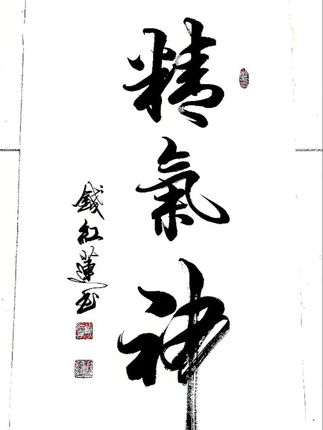 精氣神
錢紅蓮书